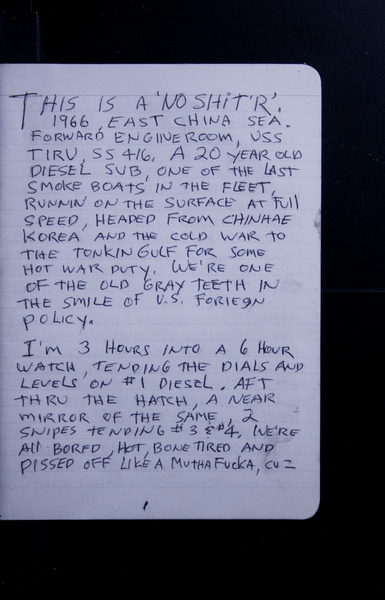 THIS IS A 'NO SHIT'R'.
1966, EAST CHINA SEA.
FORWARD ENGINE ROOM, USS
TIRU, SS 416. A 20 YEAR OLD
DIESEL SUB, ONE OF THE LAST
SMOKE BOATS IN THE FLEET,
RUNNIN ON THE SURFACE AT FULL
SPEED, HEADED FROM CHINHAE
KOREA AND THE COLD WAR TO
THE TONKIN GULF FOR SOME
HOT WAR DUTY. WE'RE ONE
OF THE OLD GRAY TEETH IN
THE SMILE OF U.S. FORIEGN
POLICY.
I'M 3 HOURS INTO A 6 HOUR
WATCH, TENDING THE DIALS AND
LEVELS ON #1 DIESEL. AFT
THRU THE HATCH, A NEAR
MIRROR OF THE SAME, 2
SNIPES TENDING #3 & #4. WE'RE
All BORED, HOT, BONE TIRED AND
PISSED OFF LIKE A MUTHA FUCKA, CUZ
1